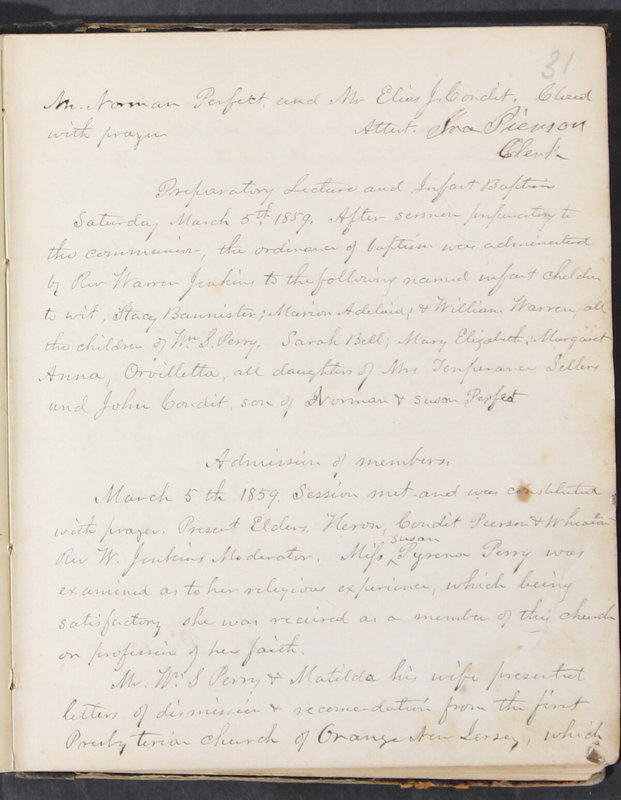 31
Mr. Norman Perfect. and Mr Elias J. Condit. Closed
with prayer Attest. Ira Pierson
Clerk
Preparatory Lecture and Infant Baptism
Saturday March 5th 1859. After sermon preparatory to
the communion, the ordinance of baptism was administered
by Rev Warren Jenkins to the following named infant children
to wit, Stacy Bannister; Marion Adelaid; & William Warren, all
the children of Wm S. Perry. Sarah Bell; Mary Elizabeth; Margaret
Anna, Orvilletta, all daughters of Mrs Temperance Sellers
and John Condit, son of Norman & Susan Perfect
Admission of members.
March 5th 1859. Session met and was constituted
with prayer. Present Elders, Heron, Condit Pierson & Wheaton
Rev W. Jenkins Moderator. Miss susan Pyrena Perry was
examined as to her religious experience, which being
satisfactory she was recieved as a member of this church
on profession of her faith.
Mr. Wm S Perry & Matilda his wife presented
letters of dismission & recomendation from the first
Presbyterian church of Orange New Jersey, which